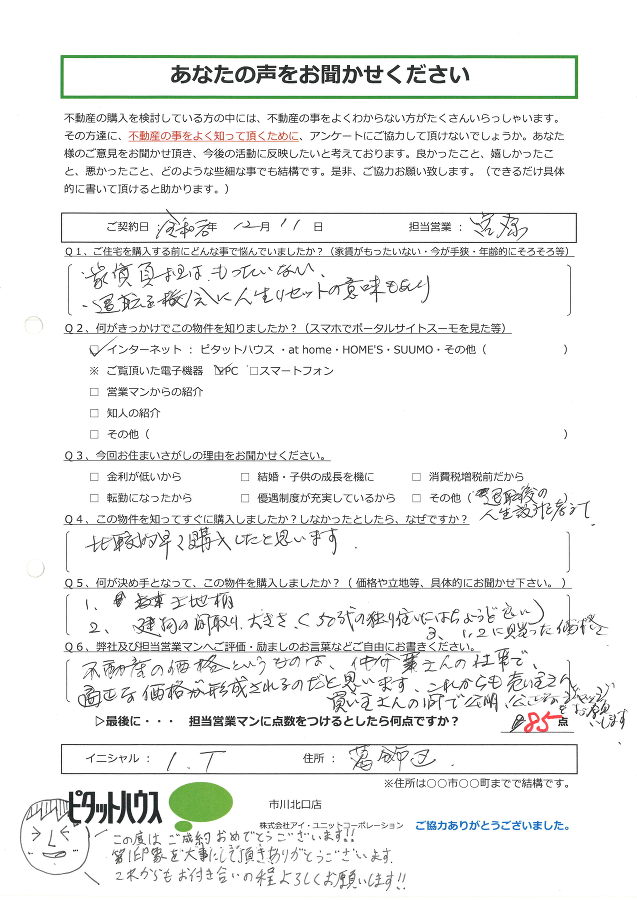 あなたの声をお聞かせください
不動産の購入を検討している方の中には、不動産の事をよくわからない方がたくさんいらっしゃいます。
その方達に、不動産の事をよく知って頂くために、アンケートにご協力して頂けないでしょうか。あなた
様のご意見をお聞かせ頂き、今後の活動に反映したいと考えております。良かったこと、嬉しかったこ
と、悪かったこと、どのような些細な事でも結構です。是非、ご協力お願い致します。（できるだけ具体
的に書いて頂けると助かります。）
ご契約日：令和元年 12月 11日 担当営業：
Q１、ご住宅を購入する前にどんな事で悩んでいましたか？（家賃がもったいない・今が手狭・年齢的にそろそろ等）
・家賃負担はもったいない、
・退職を機会に人生リセットの意味もあり
Q２、何がきっかけでこの物件を知りましたか？（スマホでポータルサイトスーモを見た等）
☑ インターネット ： ピタットハウス ・at home・HOME'S・SUUMO・その他（ ）
※ ご覧頂いた電子機器 ☑PC □スマートフォン
□ 営業マンからの紹介
□ 知人の紹介
□ その他（ ）
Q３、今回お住まいさがしの理由をお聞かせください。
□ 金利が低いから □ 結婚・子供の成長を機に □ 消費税増税前だから
□ 転勤になったから □ 優遇制度が充実しているから □ その他（退職後の）
人生設計を考えて
Q４、この物件を知ってすぐに購入しましたか？しなかったとしたら、なぜですか？
比較的早く購入したと思います．
Q５、何が決め手となって、この物件を購入しましたか？（ 価格や立地等、具体的にお聞かせ下さい。 ）
1、土地柄
2、建物の間取り、大きさ（50代の独り住いにはちょうど良い）
3、1、2に見合った価格
Q６、弊社及び担当営業マンへご評価・励ましのお言葉などご自由にお書きください。
不動産の価格というものは、仲介業さんの仕事で、
適正な価格が形成されるのだと思います、これからも売い主さん
買い主さんの間で公明、公正な
をお願いします
▷最後に・・・ 担当営業マンに点数をつけるとしたら何点ですか？ 85点
イニシャル： I.T 住所： 葛飾区
※住所は○○市○○町までで結構です。
ピタットハウス 市川北口店
株式会社アイ・ユニットコーポレーション ご協力ありがとうございました。
この度はご成約おめでとうございます!!
第1印象を大事にして頂きありがとうございます．
これからもお付き合いの程よろしくお願いします!!